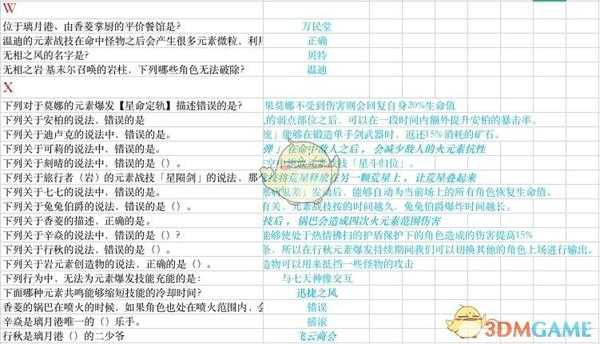 W
位于璃月港、由香菱掌厨的平价餐馆是? 万民堂
温迪的元素战技在命中怪物之后会产生很多元素微粒，利用 正确
无相之风的名字是? 贝特
无相之岩 基末尔召唤的岩柱，下列哪些角色无法破除? 温迪
X
下列对于莫娜的元素爆发【星命定轨】描述错误的是? 果莫娜不受到伤害则会回复自身20%生命值
下列关于安柏的说法，错误的是 的弱点部位之后，可以在一段时间内额外提升安柏的暴击率。
下列关于迪卢克的说法中，错误的是。 」能够在锻造单手剑武器时，返还15%消耗的矿石。
下列关于可莉的说法中，错误的是。 弹」在命中敌人之后，会减少敌人的火元素抗性
下列关于刻晴的说法中，错误的是（）。 「星斗归位」。
下列关于旅行者（岩）的元素战技「星陨剑」的说法，那 荒星释放在另一颗荒星上，让荒星叠起来
下列关于七七的说法中，错误的是。 发动后，能够自动为当前场上的所有角色恢复生命值。
下列关于兔兔伯爵的说法，错误的是（）。 有关，元素战技按的时间越久，兔兔伯爵爆炸时间越长。
下列关于香菱的描述，正确的是。 技后，锅巴会造成四次火元素范围伤害
下列关于辛焱的说法中，错误的是（）? 能够使处于热情拂扫的护盾保护下的角色造成的伤害提高15%
下列关于行秋的说法，错误的是（）。 条，所以在行秋元素爆发持续期间我们可以切换其他的角色上场进行输出。
下列关于岩元素创造物的说法，正确的是（）。 造物可以用来抵挡一些怪物的攻击
下列行为中，无法为元素爆发技能充能的是: 与七天神像交互
下面哪种元素共鸣能够缩短技能的冷却时间? 迅捷之风
香菱的锅巴在喷火的时候，如果角色也处在喷火范围内， 错误
辛焱是璃月港唯一的（）乐手。 摇滚
行秋是璃月港（）的二少爷 飞云商会
3DMGAME